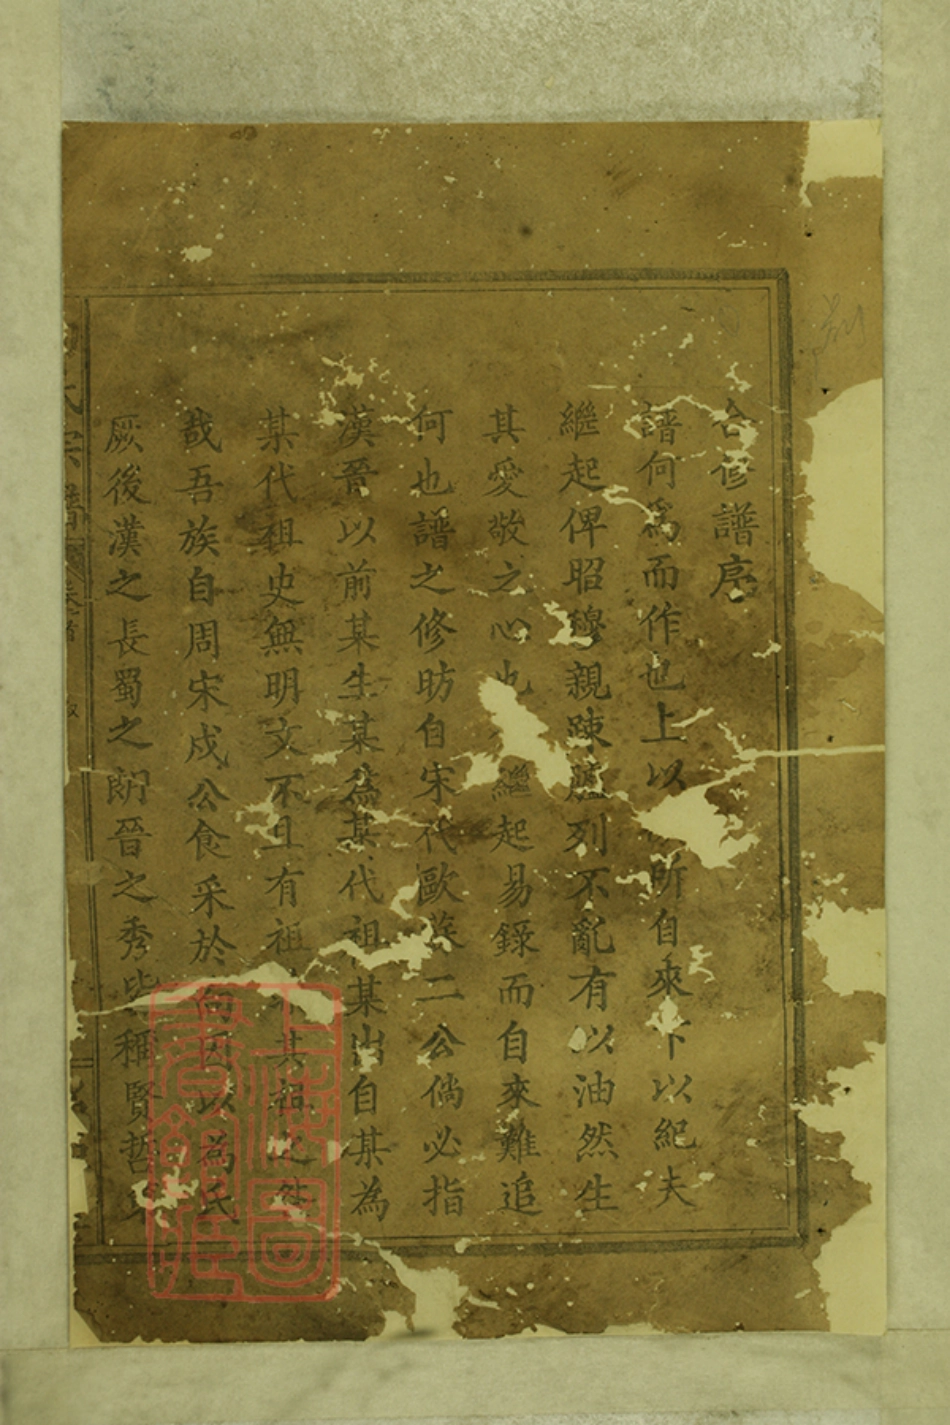 合修譜序
譜何為而作也上以 所自來下以紀夫
繼起俾昭穆親疎臚列不亂有以油然生
其愛敬之心也 繼起易錄而自來難追
何也譜之修昉自宋代歐蘇二公倘必指
漢晉以前某生某為某代祖某出自某為
某代祖史無明文不且有祖 其祖之
哉吾族自周宋戍公食采於向 以為氏
厥後漢之長蜀之朗晉之秀皆稱賢哲
氏宗譜 卷首 叙
上海圖書館藏